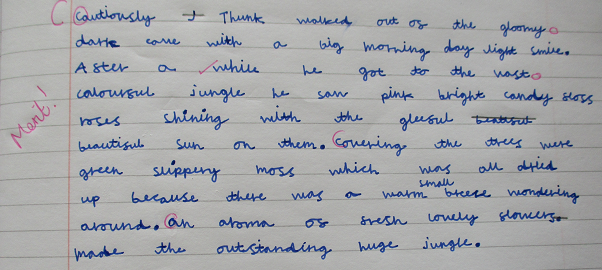 C Cautiously I Thunk walked out of the gloomy
dark cave with a big morning day light smile.
After a while he got to the vast
colourful jungle he saw pink bright candy floss
Merit!
roses shining with the gleeful beautiful
beautiful sun on them. Covering the trees were
green slippery moss which was all dried
small
up because there was a warm breeze wondering
around. An aroma of fresh lovely flowers.
made the outstanding huge jungle.